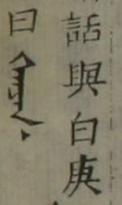 話與白庚
曰